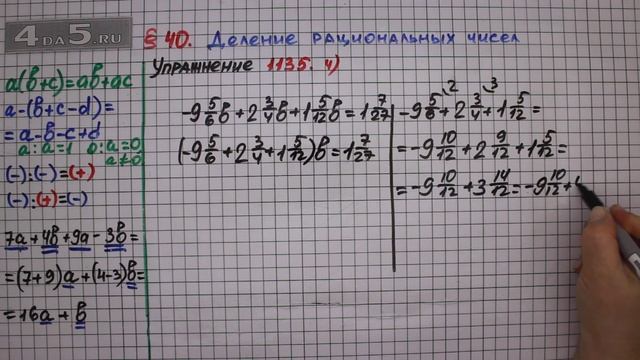 4DA5.RU
§ 40. Деление рациональных чисел
Упражнение 1135. ч)
a(b+c)=ab+ac
a-(b+c-d)=
=a-b-c+d
a:a=1 0:a=0
a≠0
(-):(-)=(+)
(-):(+)=(-)
7a+4b+9a-3b=
=(7+9)a+(4-3)b=
=16a+b
-9 5/6 b+2 3/4 b+1 5/12 b=1 7/27
(-9 5/6+2 3/4+1 5/12)b=1 7/27
-9 5/6+2 3/4+1 5/12=
2 3
=-9 10/12+2 9/12+1 5/12=
=-9 10/12+3 14/12=-9 10/12+